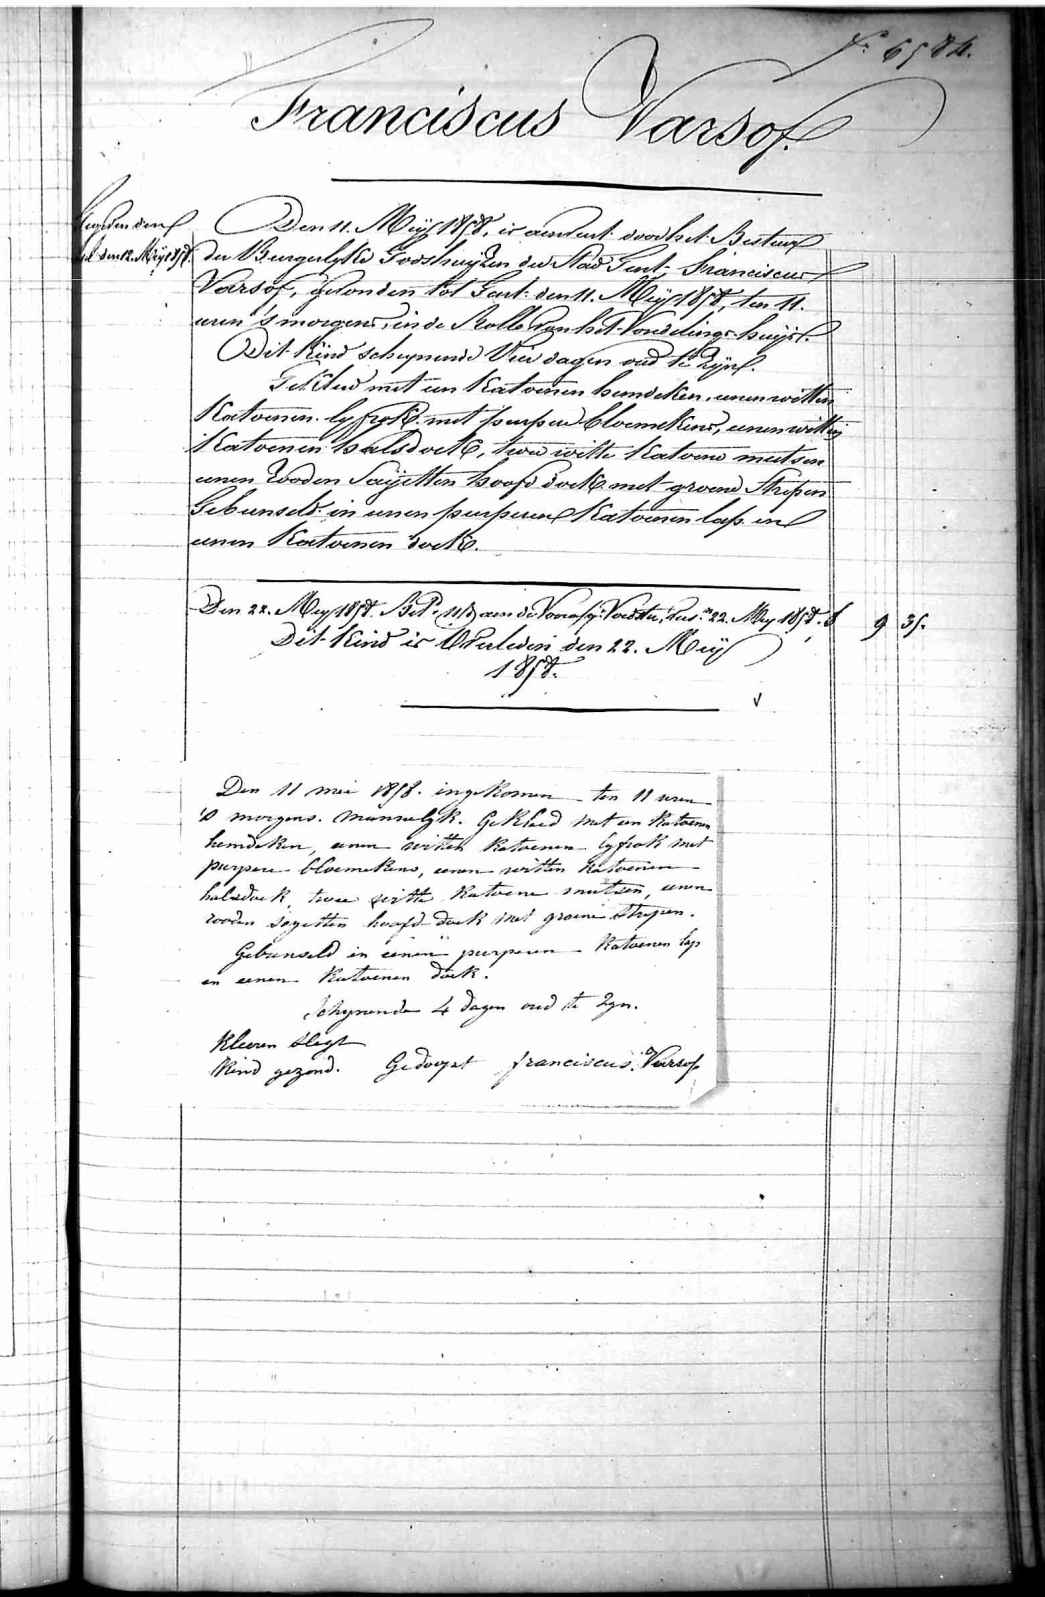 N.° 6584.
Franciscus Varsof.
Den 11. Meij 1858, is aenveert door het Bestuer
den 12. Meij 1858.
der Burgerlyke Godshuyzen der Stad Gent, Franciscus
Varsof, gevonden tot Gent den 11. Meij 1858, ten 11.
uren 's morgens, in de Rolle van het Vondelings-huijs.
Dit Kind schynende Vier dagen oud te Zijn.
Gekleed met een Katoenen hemdeken, eenen witten
Katoenen lyfrok met purpere bloemekens, eenen witten
Katoenen halsdoek, twee witte Katoene mutsen
eenen Rooden Saijetten hoofd doek met groene Strepen
Gebunseld in eenen purperen Katoenen lap en
eenen Katoenen doek.
Den 22. Meij 1858. aen de 22. Meij 1858. 9 35.
Dit Kind is Overleden den 22. Meij
1858.
Den 11 mei 1858. ingekomen ten 11 uren
's morgens. mannelyk. Gekleed met een Katoenen
hemdeken, eenen witten Katoenen lyfrok met
purpere bloemekens, eenen witten Katoenen
halsdoek, twee witte Katoene mutsen, eenen
rooden sayetten hoofd doek met groene strepen.
Gebunseld in eenen purperen Katoenen lap
en eenen Katoenen doek.
Schynende 4 dagen oud te Zyn.
Kleeren slegt
Kind gezond. Gedoopt franciscus. Varsof